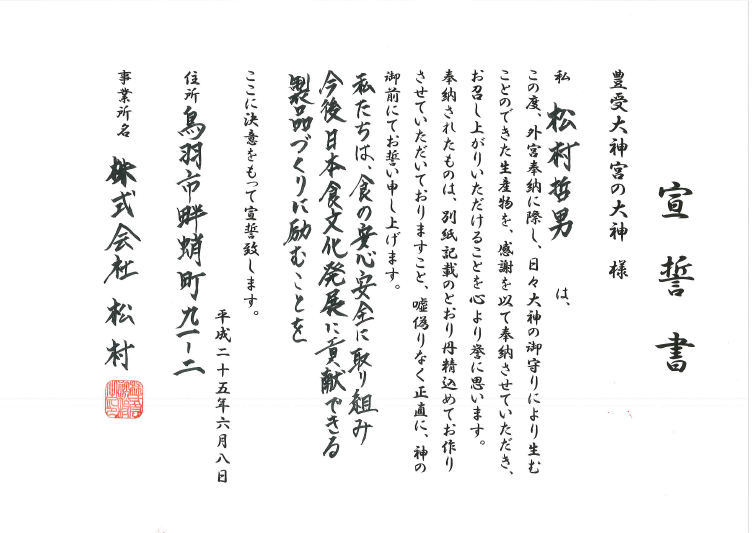 宣誓書
豊受大神宮の大神 様
私 松村哲男 は、
この度、外宮奉納に際し、日々大神の御守りにより生む
ことのできた生産物を、感謝を以て奉納させていただき、
お召し上がりいただけることを心より誉に思います。
奉納されたものは、別紙記載のとおり丹精込めてお作り
させていただいておりますこと、嘘偽りなく正直に、神の
御前にてお誓い申し上げます。
私たちは、食の安心安全に取り組み
今後日本食文化発展に貢献できる
製品づくりに励むことを
ここに決意をもって宣誓致します。
平成二十五年六月八日
住所 鳥羽市畔蛸町九一ー二
事業所名 株式会社 松村